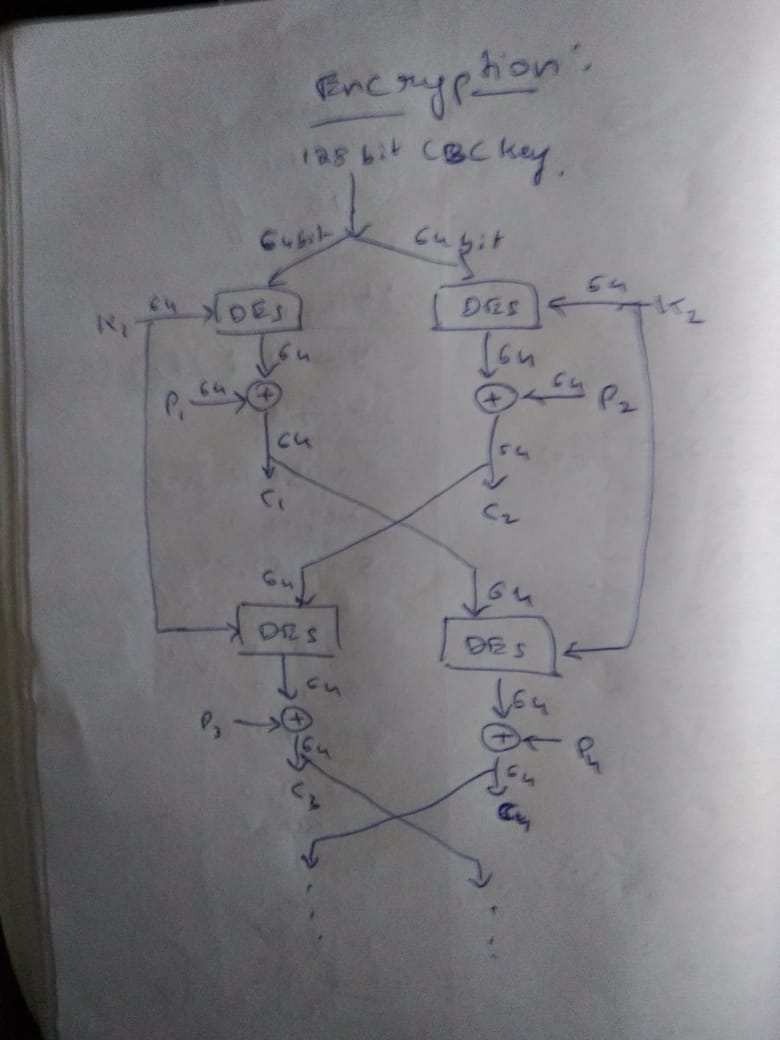 Encryption :
128 bit CBC key.
64 bit 64 bit
K1 64 DES DES 64 K2
64 64
P1 64 + + 64 P2
64 64
C1 C2
64 64
DES DES
64 64
P3 + + P4
64 64
C3 C4